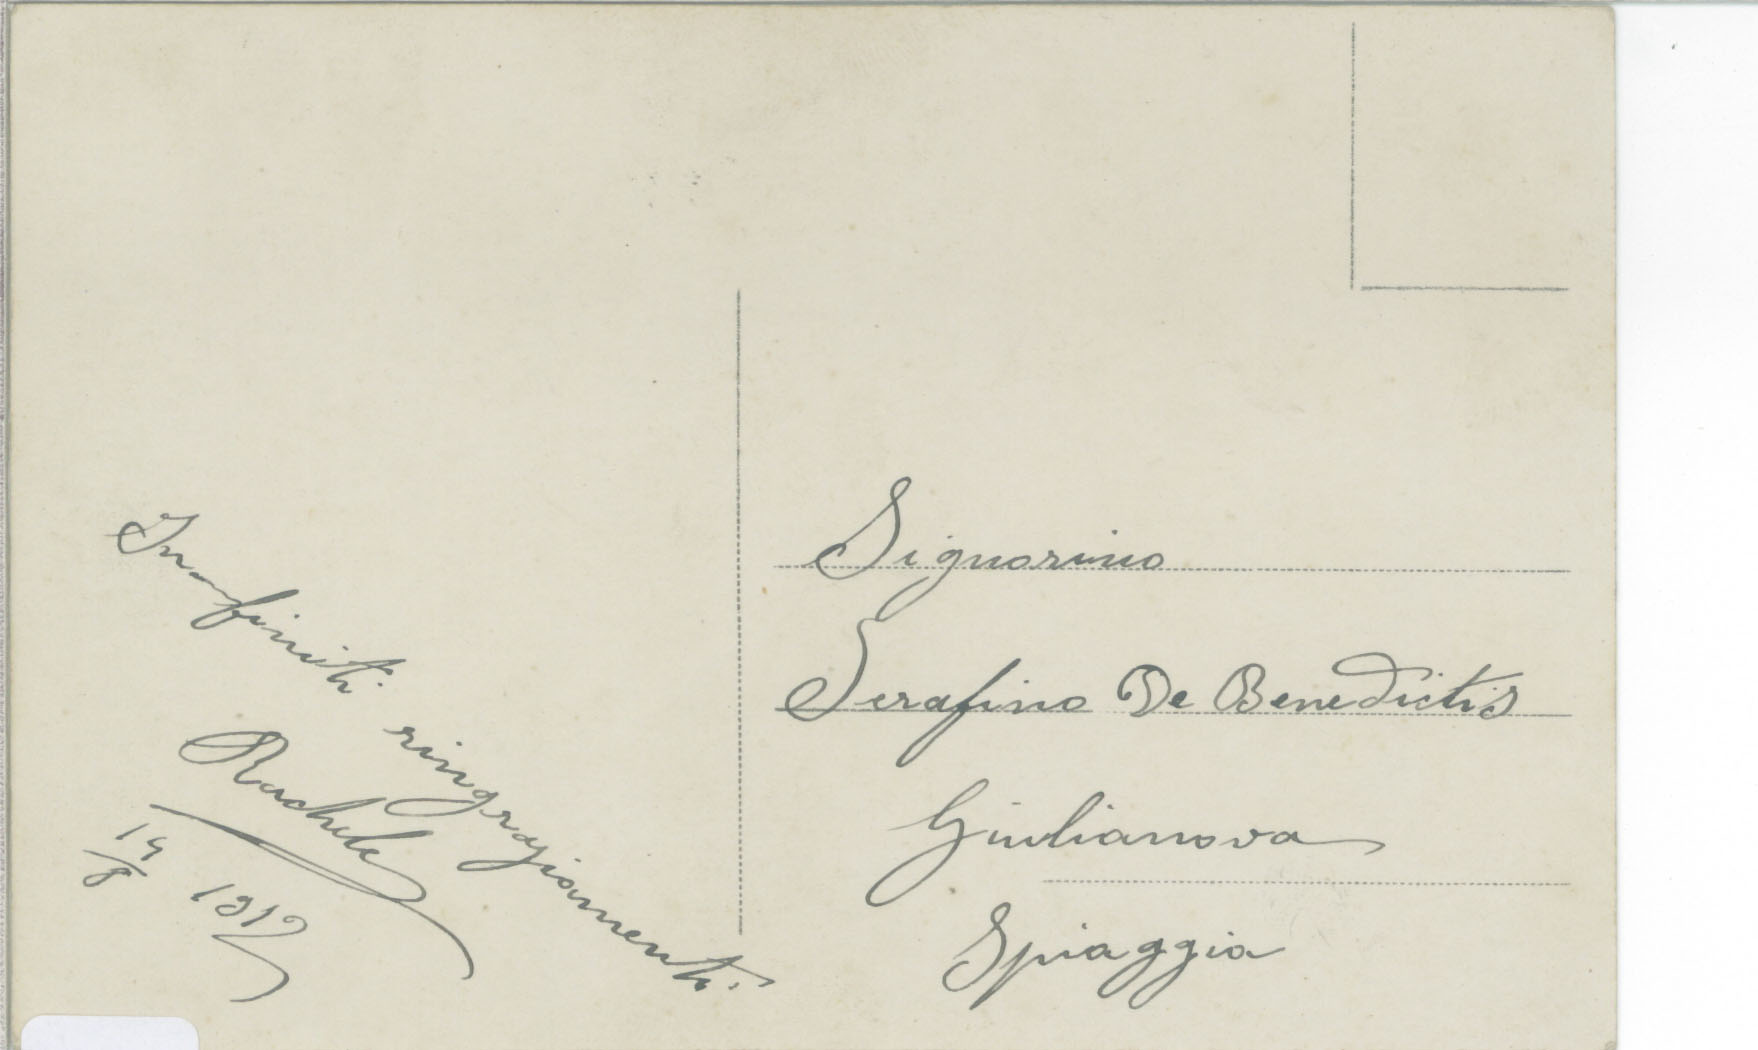 Infiniti ringraziamenti.
Rachele
14/8 1912
Signorino
Serafino De Benedictis
Giulianova
Spiaggia